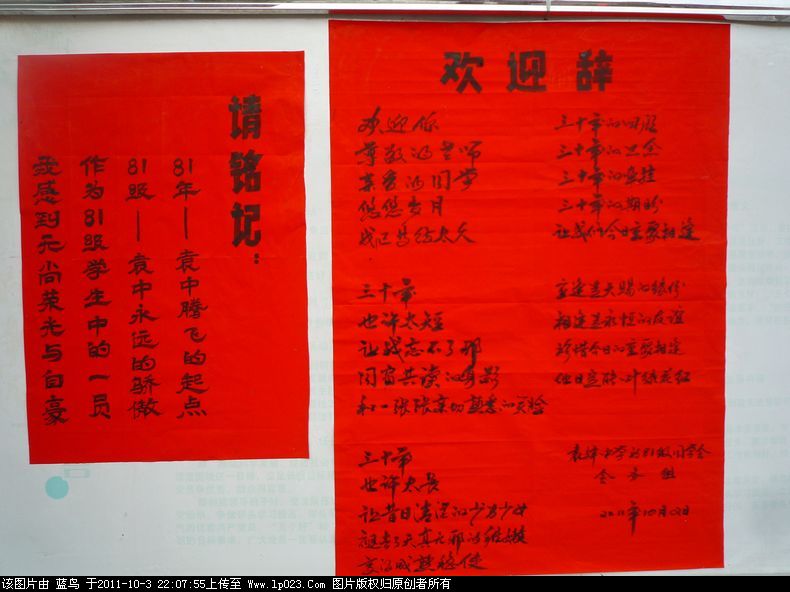 请铭记：
81年—袁中腾飞的起点
81级—袁中永远的骄傲
作为81级学生中的一员
我感到无尚荣光与自豪
欢迎辞
欢迎你
尊敬的老师
亲爱的同学
悠悠岁月
我已等待太久
三十年
也许太短
让我忘不了那
同窗共读的身影
和一张张亲切熟悉的笑脸
三十年
也许太长
让昔日清纯的少男少女
褪去了天真无邪的稚嫩
变得成熟稳健
三十年的回眸
三十年的思念
三十年的牵挂
三十年的期盼
让我们今日重聚相逢
重逢是天赐的缘份
相逢是永恒的友谊
珍惜今日的重聚相逢
他日
叶绿花红
81级同学会
会务组
2011年10月2日
该图片由 蓝鸟 于2011-10-3 22:07:55上传至 Www.lp023.Com 图片版权归原创者所有